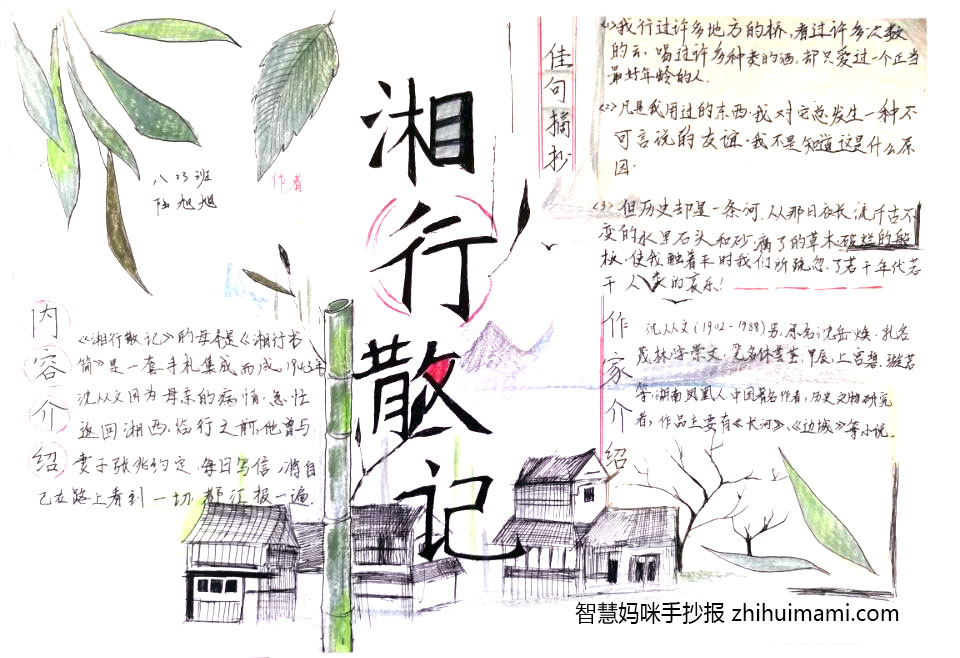 湘行散记
八23班
陆旭旭
作者
佳句摘抄
<1>我行过许多地方的桥，看过许多次数
的云，喝过许多种类的酒，却只爱过一个正当
最好年龄的人.
<2>凡是我用过的东西，我对它总发生一种不
可言说的友谊，我不是知道这是什么原
因.
<3>但历史却是一条河，从那日夜长流千古不
变的水里石头和砂，腐了的草木，破烂的船
板，使我触着平时我们所疏忽了若干年代若
干人类的哀乐！
内容介绍
《湘行散记》的母本是《湘行书
简》是一套手札集成而成，1943年
沈从文因为母亲的病情，急忙
返回湘西，临行之前，他曾与
妻子张兆约定，每日写信，将自
己在路上看到一切，都汇报一遍.
作家介绍
沈从文(1902-1988)男，原名沈岳焕，乳名
茂林，字崇文，笔名休芸芸、甲辰、上官碧、璇若
等，湖南凤凰人，中国著名作者，历史文物研究
者，作品主要有《长河》、《边城》等小说.
智慧妈咪手抄报 zhihuimami.com